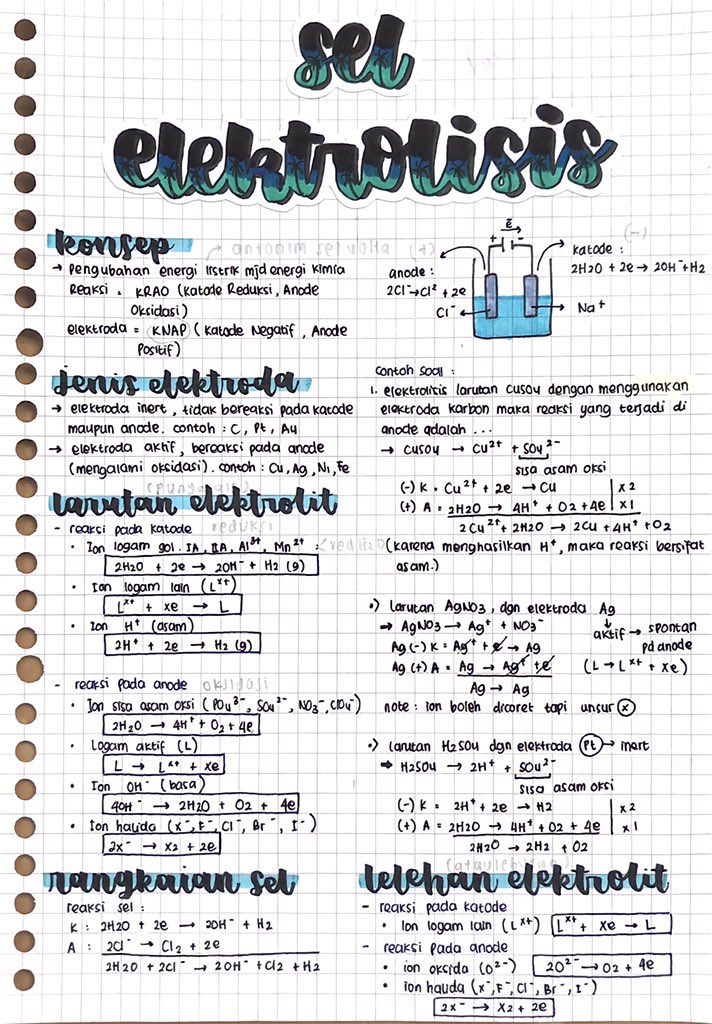 sel
elektrolisis
konsep → antonim sel volta
→ Pengubahan energi listrik mjd energi kimia
Reaksi = KRAO (Katode Reduksi, Anode
Oksidasi)
elektroda = KNAP (Katode Negatif, Anode
Positif)
(+)
(-)
ē
+ -
anode :
2Cl⁻→Cl² + 2e
Cl⁻
katode :
2H2O + 2e → 2OH⁻+H2
Na⁺
jenis elektroda
→ elektroda inert, tidak bereaksi pada katode
maupun anode. contoh : C, Pt, Au
→ elektroda aktif, bereaksi pada anode
(mengalami oksidasi). contoh : Cu, Ag, Ni, Fe
larutan elektrolit
- reaksi pada katode reduksi
• Ion logam gol. IA, IIA, Al³⁺, Mn²⁺ :
2H2O + 2e → 2OH⁻ + H2 (g)
• Ion logam lain (Lˣ⁺)
Lˣ⁺ + xe → L
• Ion H⁺ (asam)
2H⁺ + 2e → H2 (g)
- reaksi pada anode oksidasi
• Ion sisa asam oksi (PO4³⁻, SO4²⁻, NO3⁻, ClO4⁻)
2H2O → 4H⁺ + O2 + 4e
• Logam aktif (L)
L → Lˣ⁺ + xe
• Ion OH⁻ (basa)
4OH⁻ → 2H2O + O2 + 4e
• Ion halida (X⁻, F⁻, Cl⁻, Br⁻, I⁻)
2x⁻ → X2 + 2e
rangkaian sel
reaksi sel :
K : 2H2O + 2e → 2OH⁻ + H2
A : 2Cl⁻ → Cl2 + 2e
2H2O + 2Cl⁻ → 2OH⁻ + Cl2 + H2
Contoh soal :
1. elektrolisis larutan CuSO4 dengan menggunakan
elektroda karbon maka reaksi yang terjadi di
anode adalah ...
→ CuSO4 → Cu²⁺ + SO4²⁻
sisa asam oksi
(-) K = Cu²⁺ + 2e → Cu | x 2
(+) A = 2H2O → 4H⁺ + O2 + 4e | x 1
2Cu²⁺ + 2H2O → 2Cu + 4H⁺ + O2
(karena menghasilkan H⁺, maka reaksi bersifat
asam.)
•) larutan AgNO3, dgn elektroda Ag
⇒ AgNO3 → Ag⁺ + NO3⁻
aktif → spontan
pd anode
Ag (-) K = Ag⁺ + e → Ag
Ag (+) A = Ag → Ag⁺ + e
(L → Lˣ⁺ + xe)
Ag → Ag
note : ion boleh dicoret tapi unsur x
•) larutan H2SO4 dgn elektroda Pt → inert
⇒ H2SO4 → 2H⁺ + SO4²⁻
sisa asam oksi
(-) K = 2H⁺ + 2e → H2 | x 2
(+) A = 2H2O → 4H⁺ + O2 + 4e | x 1
2H2O → 2H2 + O2
lelehan elektrolit
- reaksi pada katode
• Ion logam lain (Lˣ⁺) Lˣ⁺ + xe → L
- reaksi pada anode
• ion oksida (O²⁻) 2O²⁻ → O2 + 4e
• ion halida (X⁻, F⁻, Cl⁻, Br⁻, I⁻)
2x⁻ → X2 + 2e